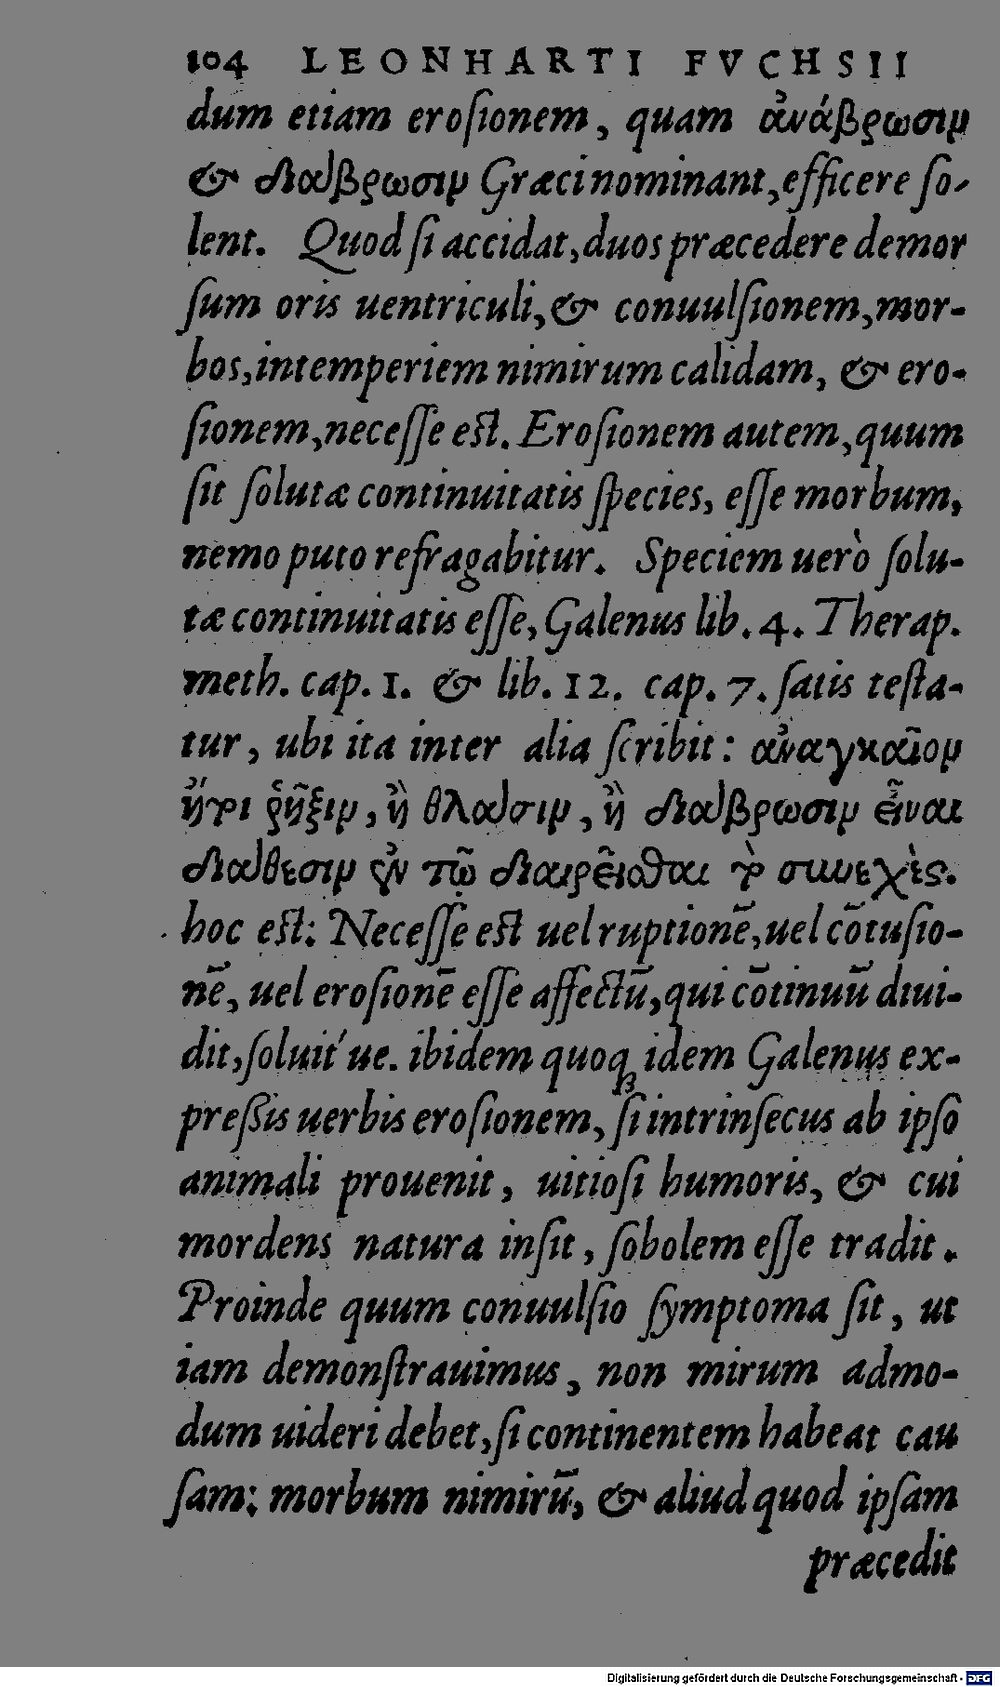 104 LEONHARTI FVCHSII
dum etiam eroſionem, quam ἀνάβρωσιν
& διάβρωσιν Græci nominant, efficere ſo-
lent. Quod ſi accidat, duos præcedere demor
ſum oris uentriculi, & conuulſionem, mor-
bos, intemperiem nimirum calidam, & ero-
ſionem, neceſſe est. Eroſionem autem, quum
ſit ſolutæ continuitatis ſpecies, eſſe morbum,
nemo puto refragabitur. Speciem uerò ſolu-
tæ continuitatis eſſe, Galenus lib. 4. Therap.
meth. cap. 1. & lib. 12. cap. 7. ſatis teſta-
tur, ubi ita inter alia ſcribit: ἀναγκαῖον
ἤτοι ῥῆξιν, ἢ θλάσιν, ἢ διάβρωσιν εἶναι
διάθεσιν ἐν τῷ διαιρεῖσθαι τὸ συνεχὲς.
hoc est: Neceſſe est uel ruptionē, uel cōtuſio-
nē, uel eroſionē eſſe affectū, qui cōtinuū diui-
dit, ſoluit'ue. ibidem quoqꝫ idem Galenus ex-
preßis uerbis eroſionem, ſi intrinſecus ab ipſo
animali prouenit, uitioſi humoris, & cui
mordens natura inſit, ſobolem eſſe tradit.
Proinde quum conuulſio ſymptoma ſit, ut
iam demonſtrauimus, non mirum admo-
dum uideri debet, ſi continentem habeat cau
ſam: morbum nimirū, & aliud quod ipſam
præcedit
Digitalisierung gefördert durch die Deutsche Forschungsgemeinschaft - DFG